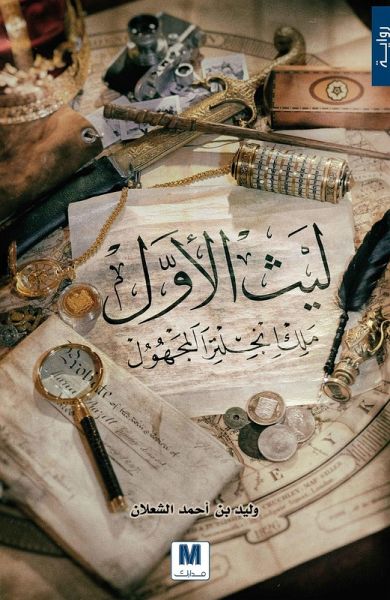 رواية
ليث الأول
ملك إنجلترا المجهول
Probate
وليد بن أحمد الشعلان
M
مدارك